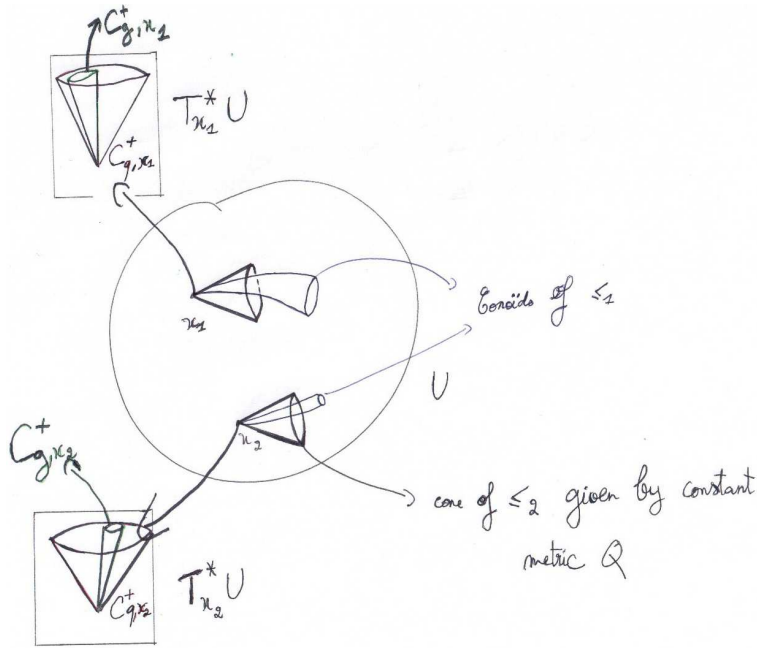 C⁺g,x₁
T*x₁ U
C⁺q,x₁
x₁
Conoïds of ≤₁
U
x₂
C⁺g,x₂
cone of ≤₂ given by constant
metric Q
T*x₂ U
C⁺q,x₂